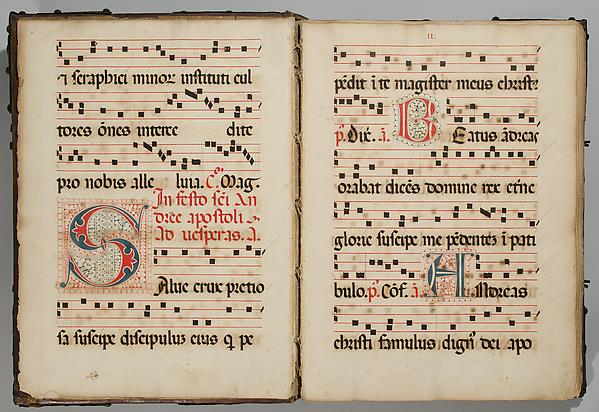 ⁊ seraphici minoꝝ instituti cul
tores oēs interce dite
pro nobis alle luia. Cōꝫ. Mag.
In festo sc̄i An
dree apostoli
Ad uesperas. A.
Salue crux pretio
sa suscipe discipulus eius q̄ pe
II.
pēdit ī te magister meus christꝰ
p̄. Dix̄. ā. Beatus ādreas
orabat dicēs domine rex etne
glorie suscipe me pēdentē ī pati
bulo. p̄. Cōf. ā. Andreas
christi famulus dignꝰ dei apo